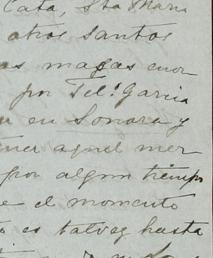 Cata, Sta Mari
otros santos
as magas enor
por Tel! Garcia
en Sonora y
ener aquel mer
por algun tiempo
e el momento
es talvez hasta